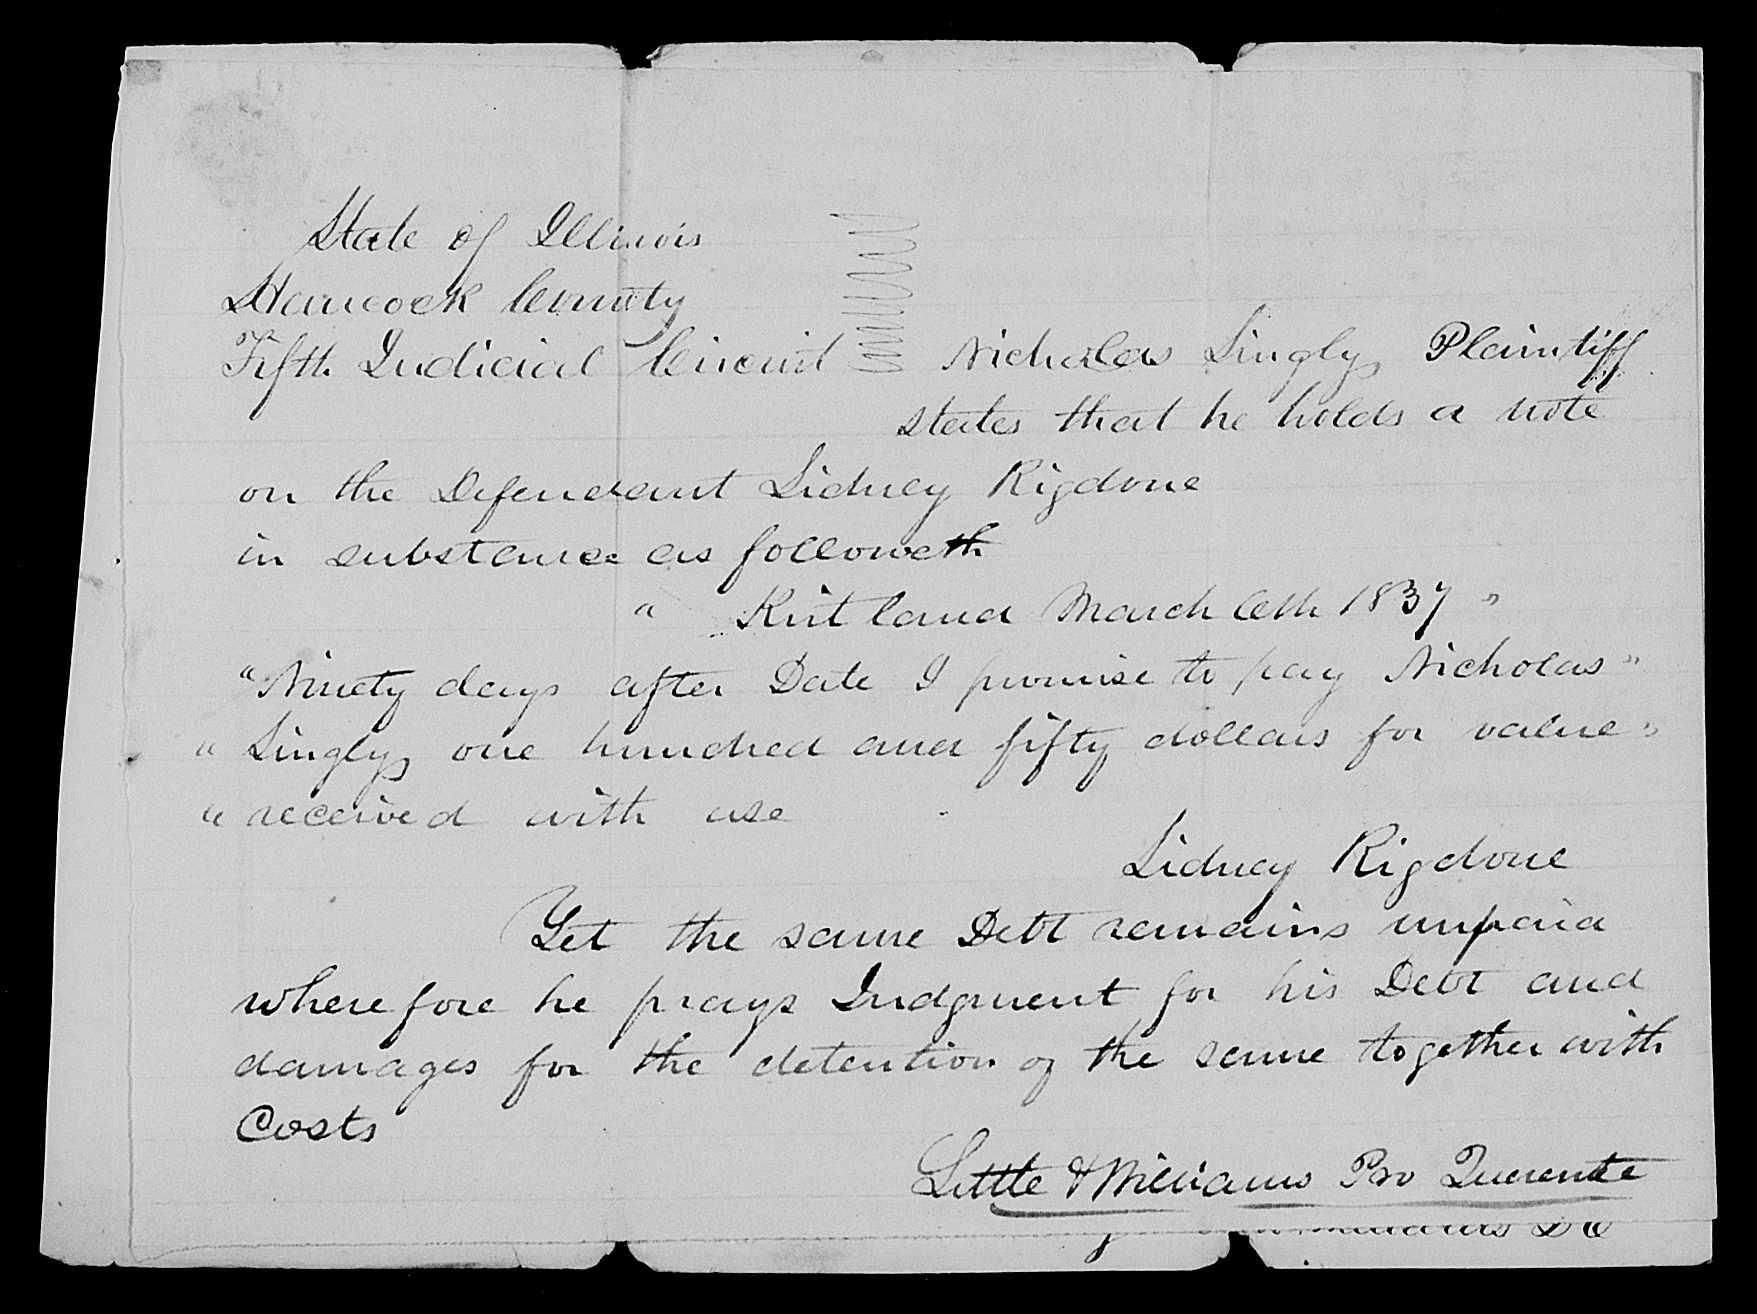 State of Illinois
Hancock County
Fifth Judicial Circuit Nicholas Singly Plaintiff
states that he holds a note
on the Defendant Sidney Rigdone
in substance as followeth
" Kirtland March 6th 1837 "
"Ninety days after Date I promise to pay Nicholas"
" Singly one hundred and fifty dollars for value "
" received with use
Sidney Rigdone
Yet the same Debt remains unpaid
wherefore he prays Judgment for his Debt and
damages for the detention of the same together with
Costs
Little & Williams Pro Querente